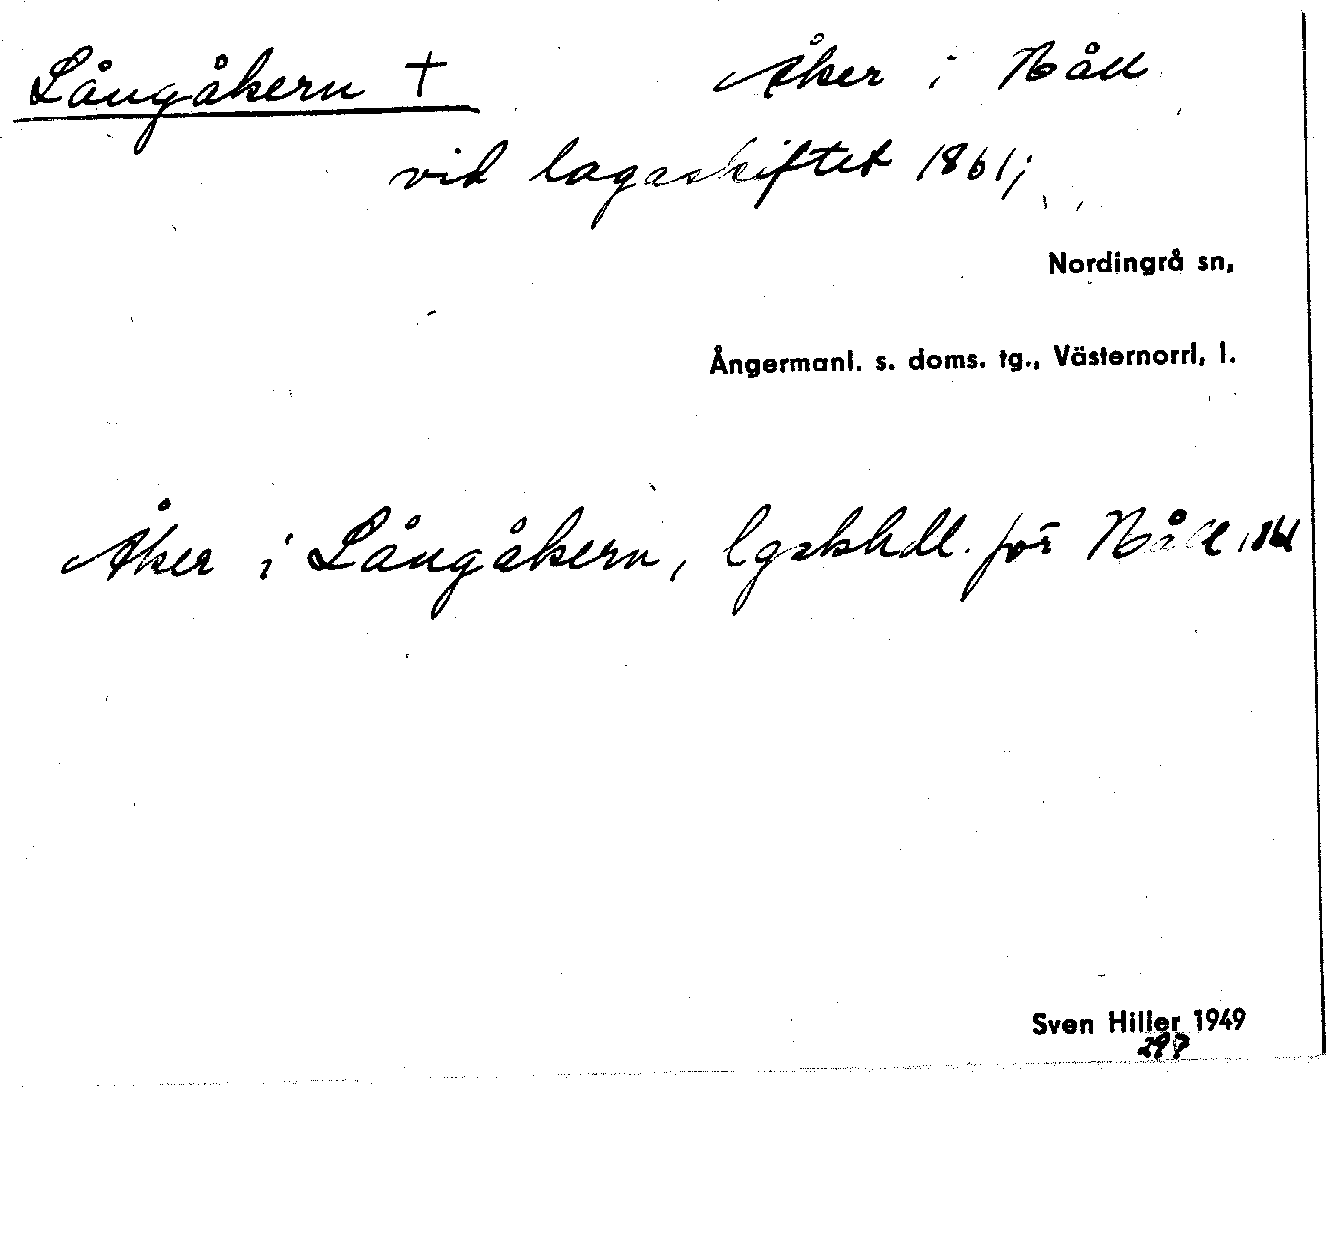 Långåkern † Åker i Nåll
vid lagaskiftet 1861;
Nordingrå sn,
Ångermanl. s. doms. tg., Västernorrl, l.
Åker i Långåkern, lgskhdl. för Nåll, 1861
Sven Hiller 1949
297